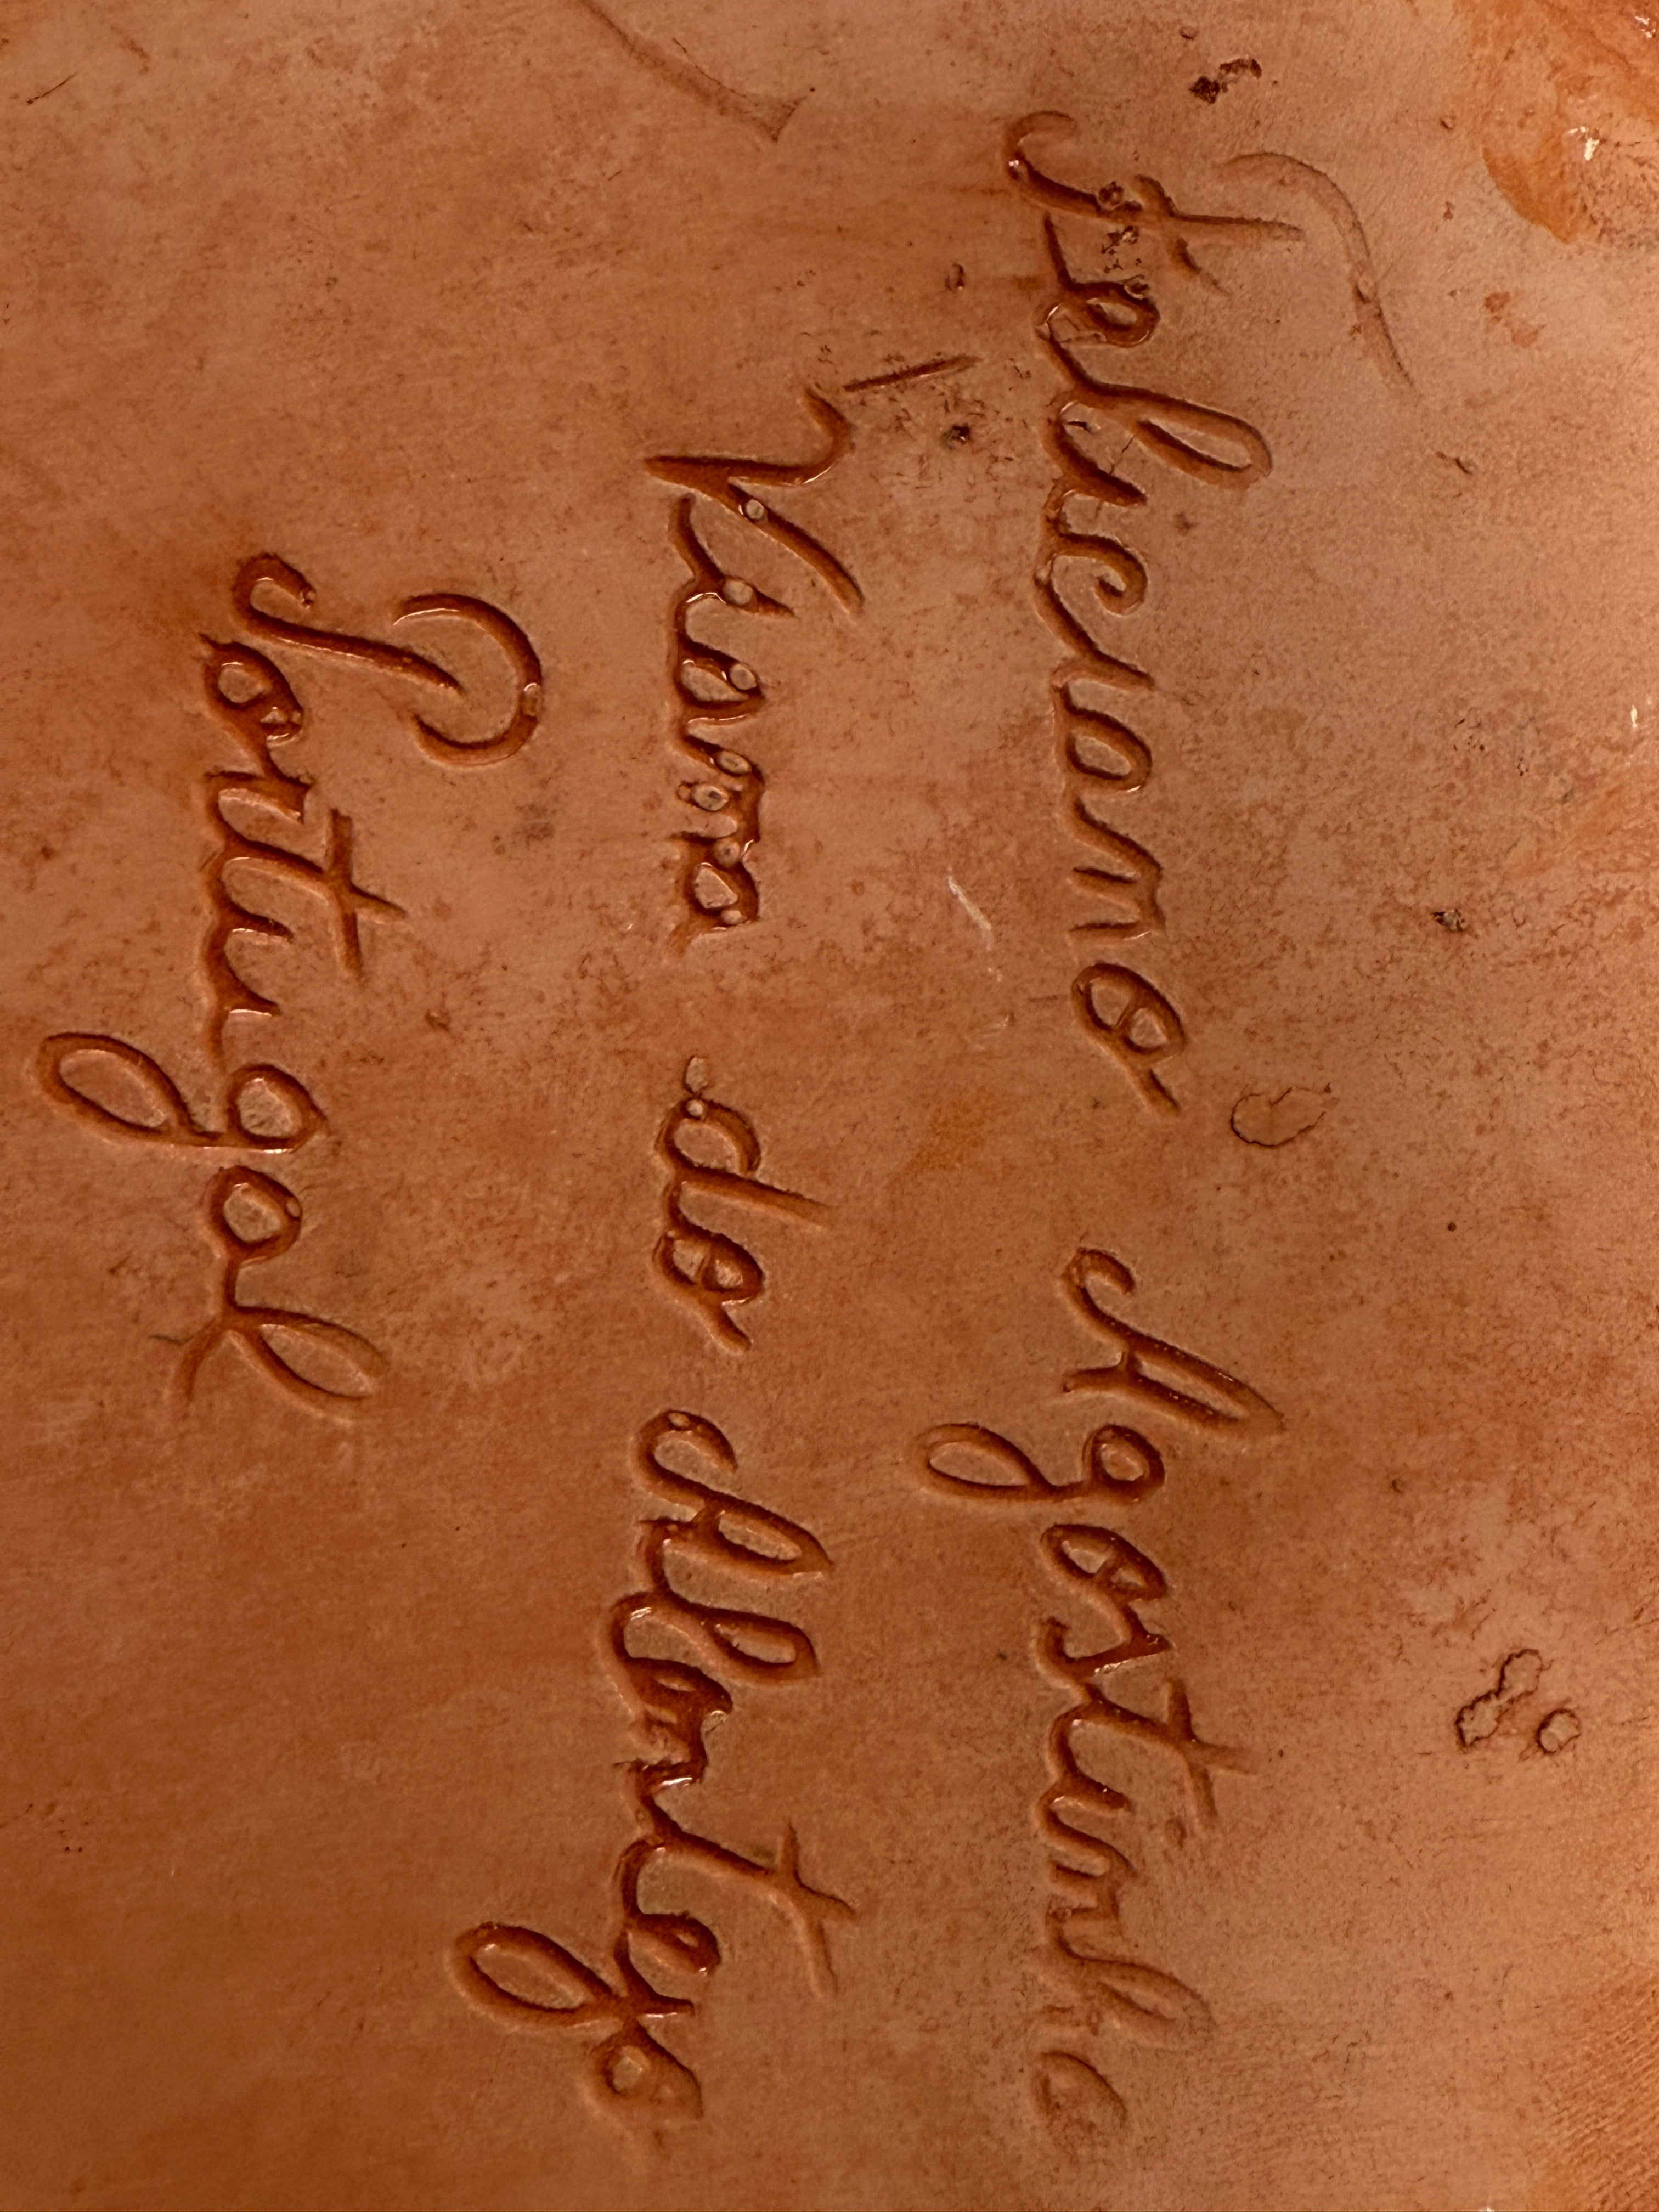 Feliciano Agostinho
Viana do Alentejo
Portugal